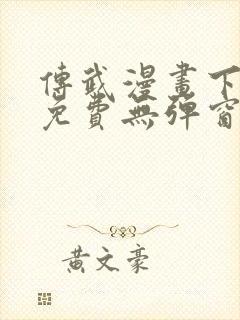 傳武漫畫下
免費無彈窗
黃文豪